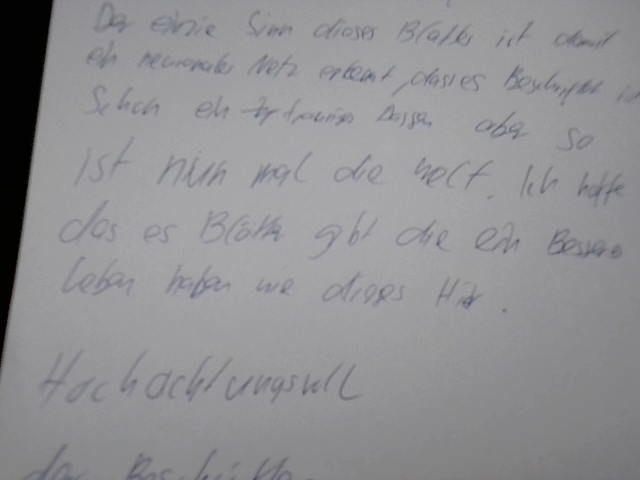 Der einzie Sinn dieses Blattes ist damit
ein neuronales Netz erkennt, dass es Beschriftet is
Schon ein trauriges Dassen aber so
ist nun mal die welt. Ich hoffe
das es Blätter gibt die ein Besseres
leben haben wie dieses Hier.
Hochachtungsvoll
der Beschrifter